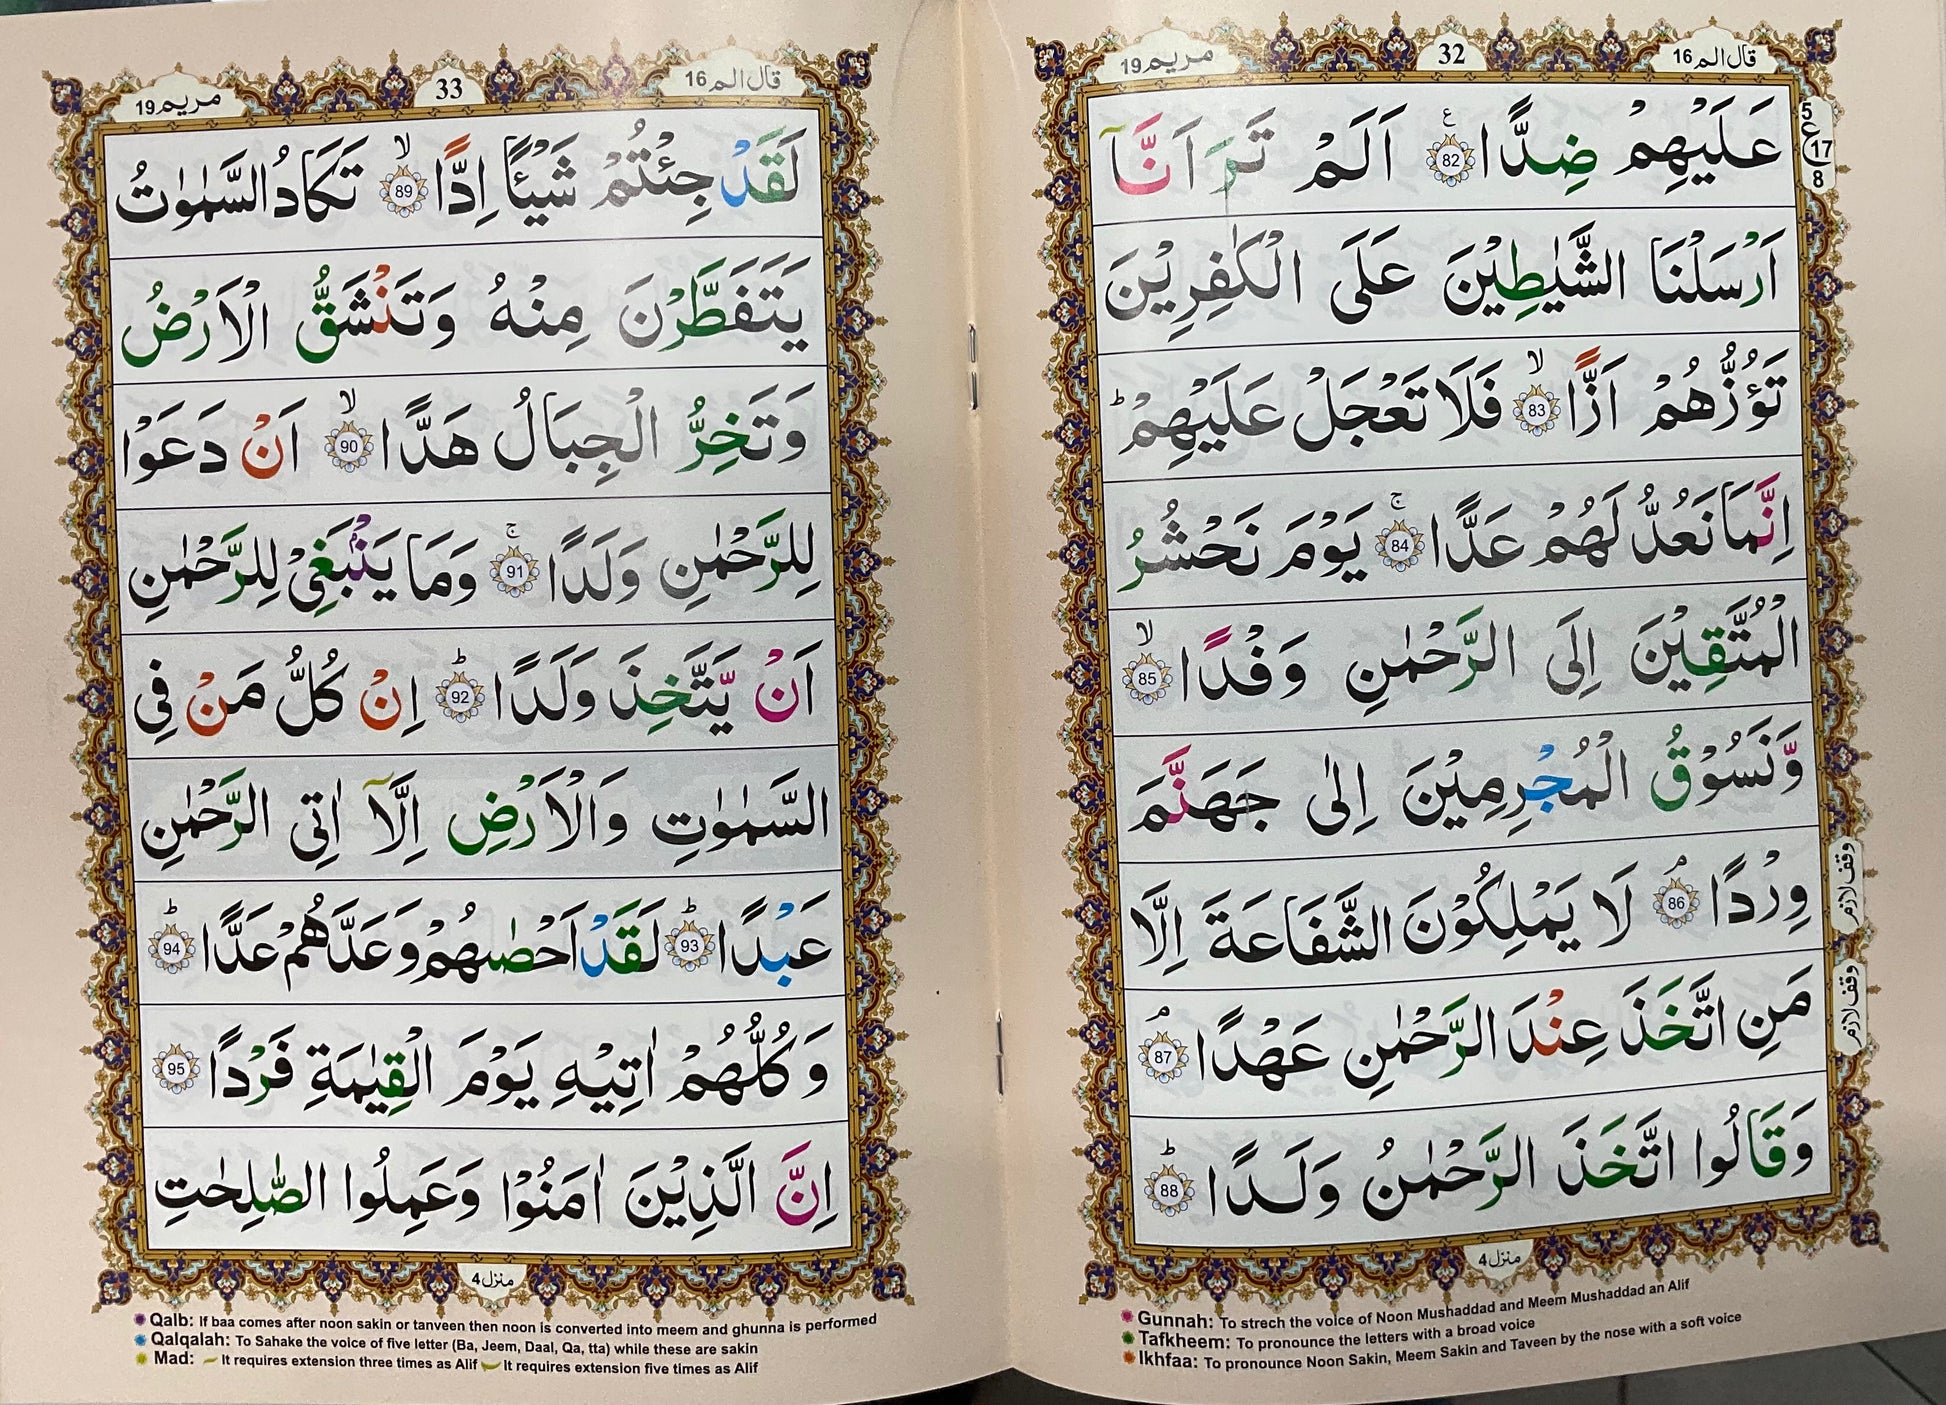 قال الم 16
32
مريم 19
عَلَيْهِمْ ضِدًّا ﴿82﴾ ع اَلَمْ تَرَ اَنَّاۤ
5
ع
17
8
اَرْسَلْنَا الشَّيٰطِيْنَ عَلَى الْكٰفِرِيْنَ
تَؤُزُّهُمْ اَزًّا ﴿83﴾ۙ فَلَا تَعْجَلْ عَلَيْهِمْ ؕ
اِنَّمَا نَعُدُّ لَهُمْ عَدًّا ﴿84﴾ۚ يَوْمَ نَحْشُرُ
الْمُتَّقِيْنَ اِلَى الرَّحْمٰنِ وَفْدًا ﴿85﴾ۙ
وَّنَسُوْقُ الْمُجْرِمِيْنَ اِلٰى جَهَنَّمَ
وِرْدًا ﴿86﴾ۘ لَا يَمْلِكُوْنَ الشَّفَاعَةَ اِلَّا
وقف لازم
مَنِ اتَّخَذَ عِنْدَ الرَّحْمٰنِ عَهْدًا ﴿87﴾ۘ
وقف لازم
وَقَالُوا اتَّخَذَ الرَّحْمٰنُ وَلَدًا ﴿88﴾ؕ
منزل 4
Gunnah: To strech the voice of Noon Mushaddad and Meem Mushaddad an Alif
Tafkheem: To pronounce the letters with a broad voice
Ikhfaa: To pronounce Noon Sakin, Meem Sakin and Taveen by the nose with a soft voice
قال الم 16
33
مريم 19
لَقَدْ جِئْتُمْ شَيْـًٔا اِدًّا ﴿89﴾ۙ تَكَادُ السَّمٰوٰتُ
يَتَفَطَّرْنَ مِنْهُ وَتَنْشَقُّ الْاَرْضُ
وَتَخِرُّ الْجِبَالُ هَدًّا ﴿90﴾ۙ اَنْ دَعَوْا
لِلرَّحْمٰنِ وَلَدًا ﴿91﴾ۚ وَمَا يَنْۢبَغِىْ لِلرَّحْمٰنِ
اَنْ يَّتَّخِذَ وَلَدًا ﴿92﴾ؕ اِنْ كُلُّ مَنْ فِى
السَّمٰوٰتِ وَالْاَرْضِ اِلَّاۤ اٰتِى الرَّحْمٰنِ
عَبْدًا ﴿93﴾ؕ لَقَدْ اَحْصٰىهُمْ وَعَدَّهُمْ عَدًّا ﴿94﴾ؕ
وَكُلُّهُمْ اٰتِيْهِ يَوْمَ الْقِيٰمَةِ فَرْدًا ﴿95﴾
اِنَّ الَّذِيْنَ اٰمَنُوْا وَعَمِلُوا الصّٰلِحٰتِ
منزل 4
Qalb: If baa comes after noon sakin or tanveen then noon is converted into meem and ghunna is performed
Qalqalah: To Sahake the voice of five letter (Ba, Jeem, Daal, Qa, tta) while these are sakin
Mad: It requires extension three times as Alif It requires extension five times as Alif